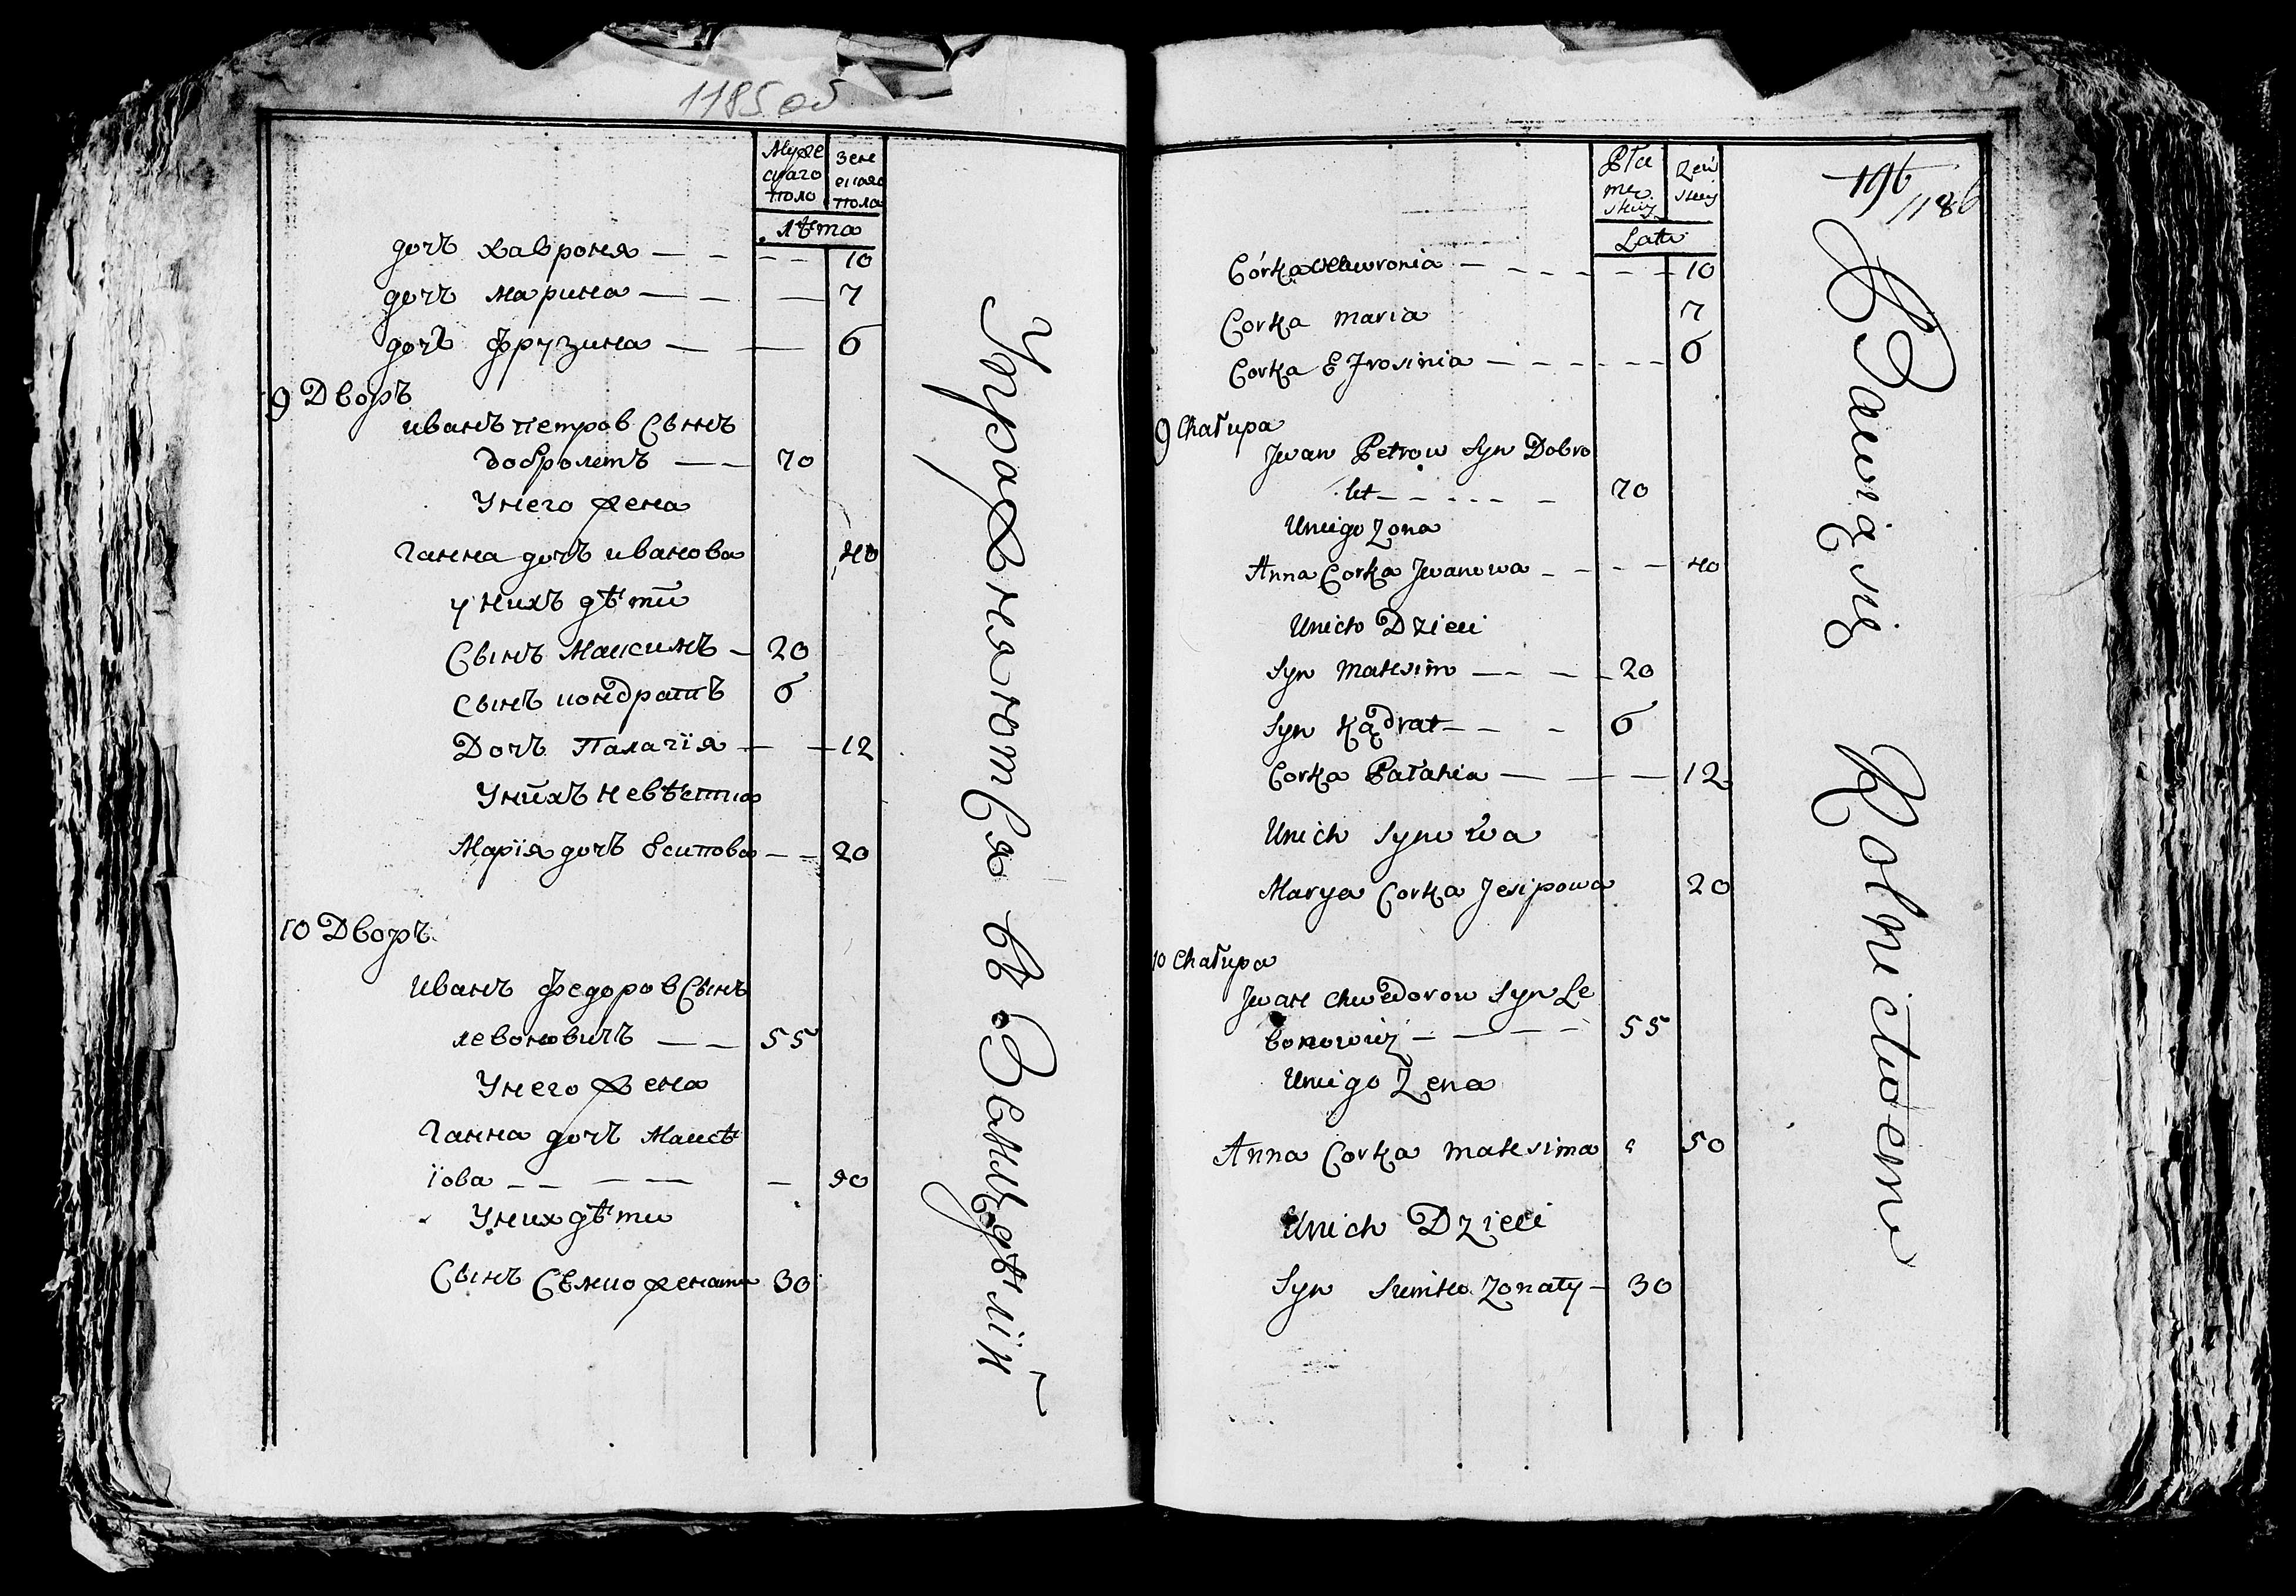 1185 об
Муже
скаго
поло
Зене
скаго
пола
лѣта
дочь хавроня — — — — 10
дочь Марина — — — 7
дочь Фрузина — — 6
9 Дворъ
иванъ петров Сынъ
добролетъ — — 70
Унего жена
Ганна дочъ иванова 40
у нихъ дѣти
Сынъ Максимъ — 20
Сынъ кондратъ 6
Дочъ Палагїя — — 12
Унихъ невѣстка
Марїя дочъ Осипова — — 20
10 Дворъ
иванъ федоров Сынъ
левоновичъ — — 55
Унего жена
Ганна дочъ Максѣ
їова — — — — — 50
Уних дѣти
Сынъ Сѣмко женати 30
Упражняются въ Земледѣлїи
Płci
mę
skiej
Zeń
skiej
Lata
196
1186
Córka Chawronia — — — — — — 10
Corka Maria 7
Corka Efrosinia — — — — — — 6
9 Chałupa
Jwan Petrow Syn Dobro
let — — — — — — 70
Uniego Zona
Anna Corka Jwanowa — — — — 40
Unich Dzieci
Syn Maksim — — — — 20
Syn Kądrat — — — 6
Corka Pałahia — — — 12
Unich Synowa
Marya Corka Jesipowa 20
10 Chałupa
Jwan Chwedorow Syn Le
wonowicz — — — — 55
Uniego Zena
Anna Corka Maksima 50
Unich Dzieci
Syn Siemko Zonaty — 30
Bawią się Rolnictwem